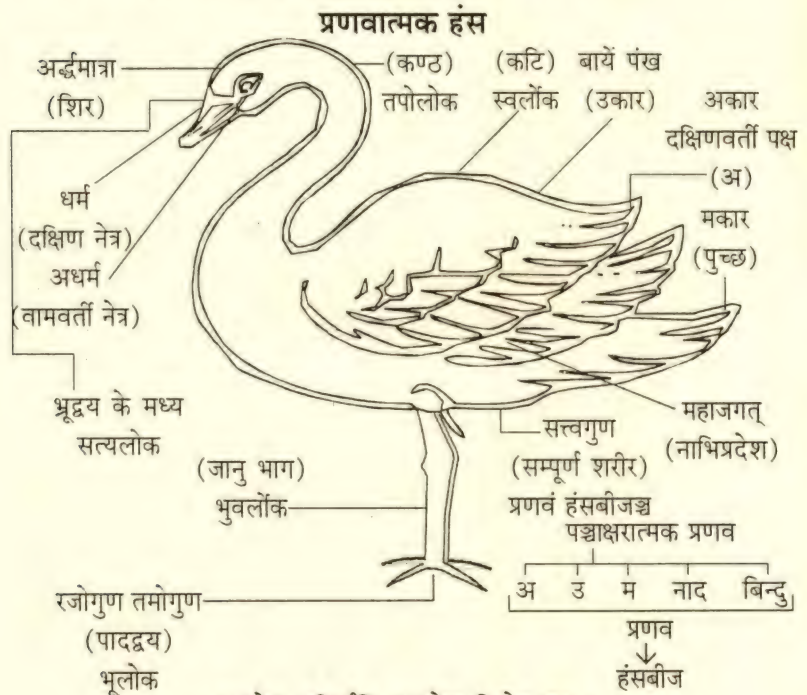 प्रणवात्मक हंस
अर्द्धमात्रा
(शिर)
(कण्ठ)
तपोलोक
(कटि)
स्वर्लोक
बायें पंख
(उकार)
अकार
दक्षिणवर्ती पक्ष
(अ)
मकार
(पुच्छ)
धर्म
(दक्षिण नेत्र)
अधर्म
(वामवर्ती नेत्र)
भ्रूद्वय के मध्य
सत्यलोक
महाजगत्
(नाभिप्रदेश)
सत्त्वगुण
(सम्पूर्ण शरीर)
(जानु भाग)
भुवर्लोक
प्रणवं हंसबीजञ्च
पञ्चाक्षरात्मक प्रणव
अ उ म नाद बिन्दु
रजोगुण तमोगुण
(पादद्वय)
भूलोक
प्रणव
↓
हंसबीज